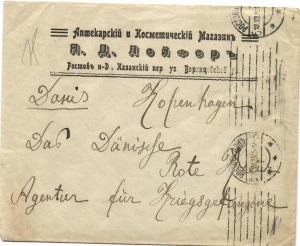 Аптекарскій и Косметическій Магазинъ
Л. Д. Лойферъ
Ростовъ н-Д. Казанскій пер. уг
Danis Kopenhagen
Das Dänische
Rote
Agentur für Kriegsgefangene